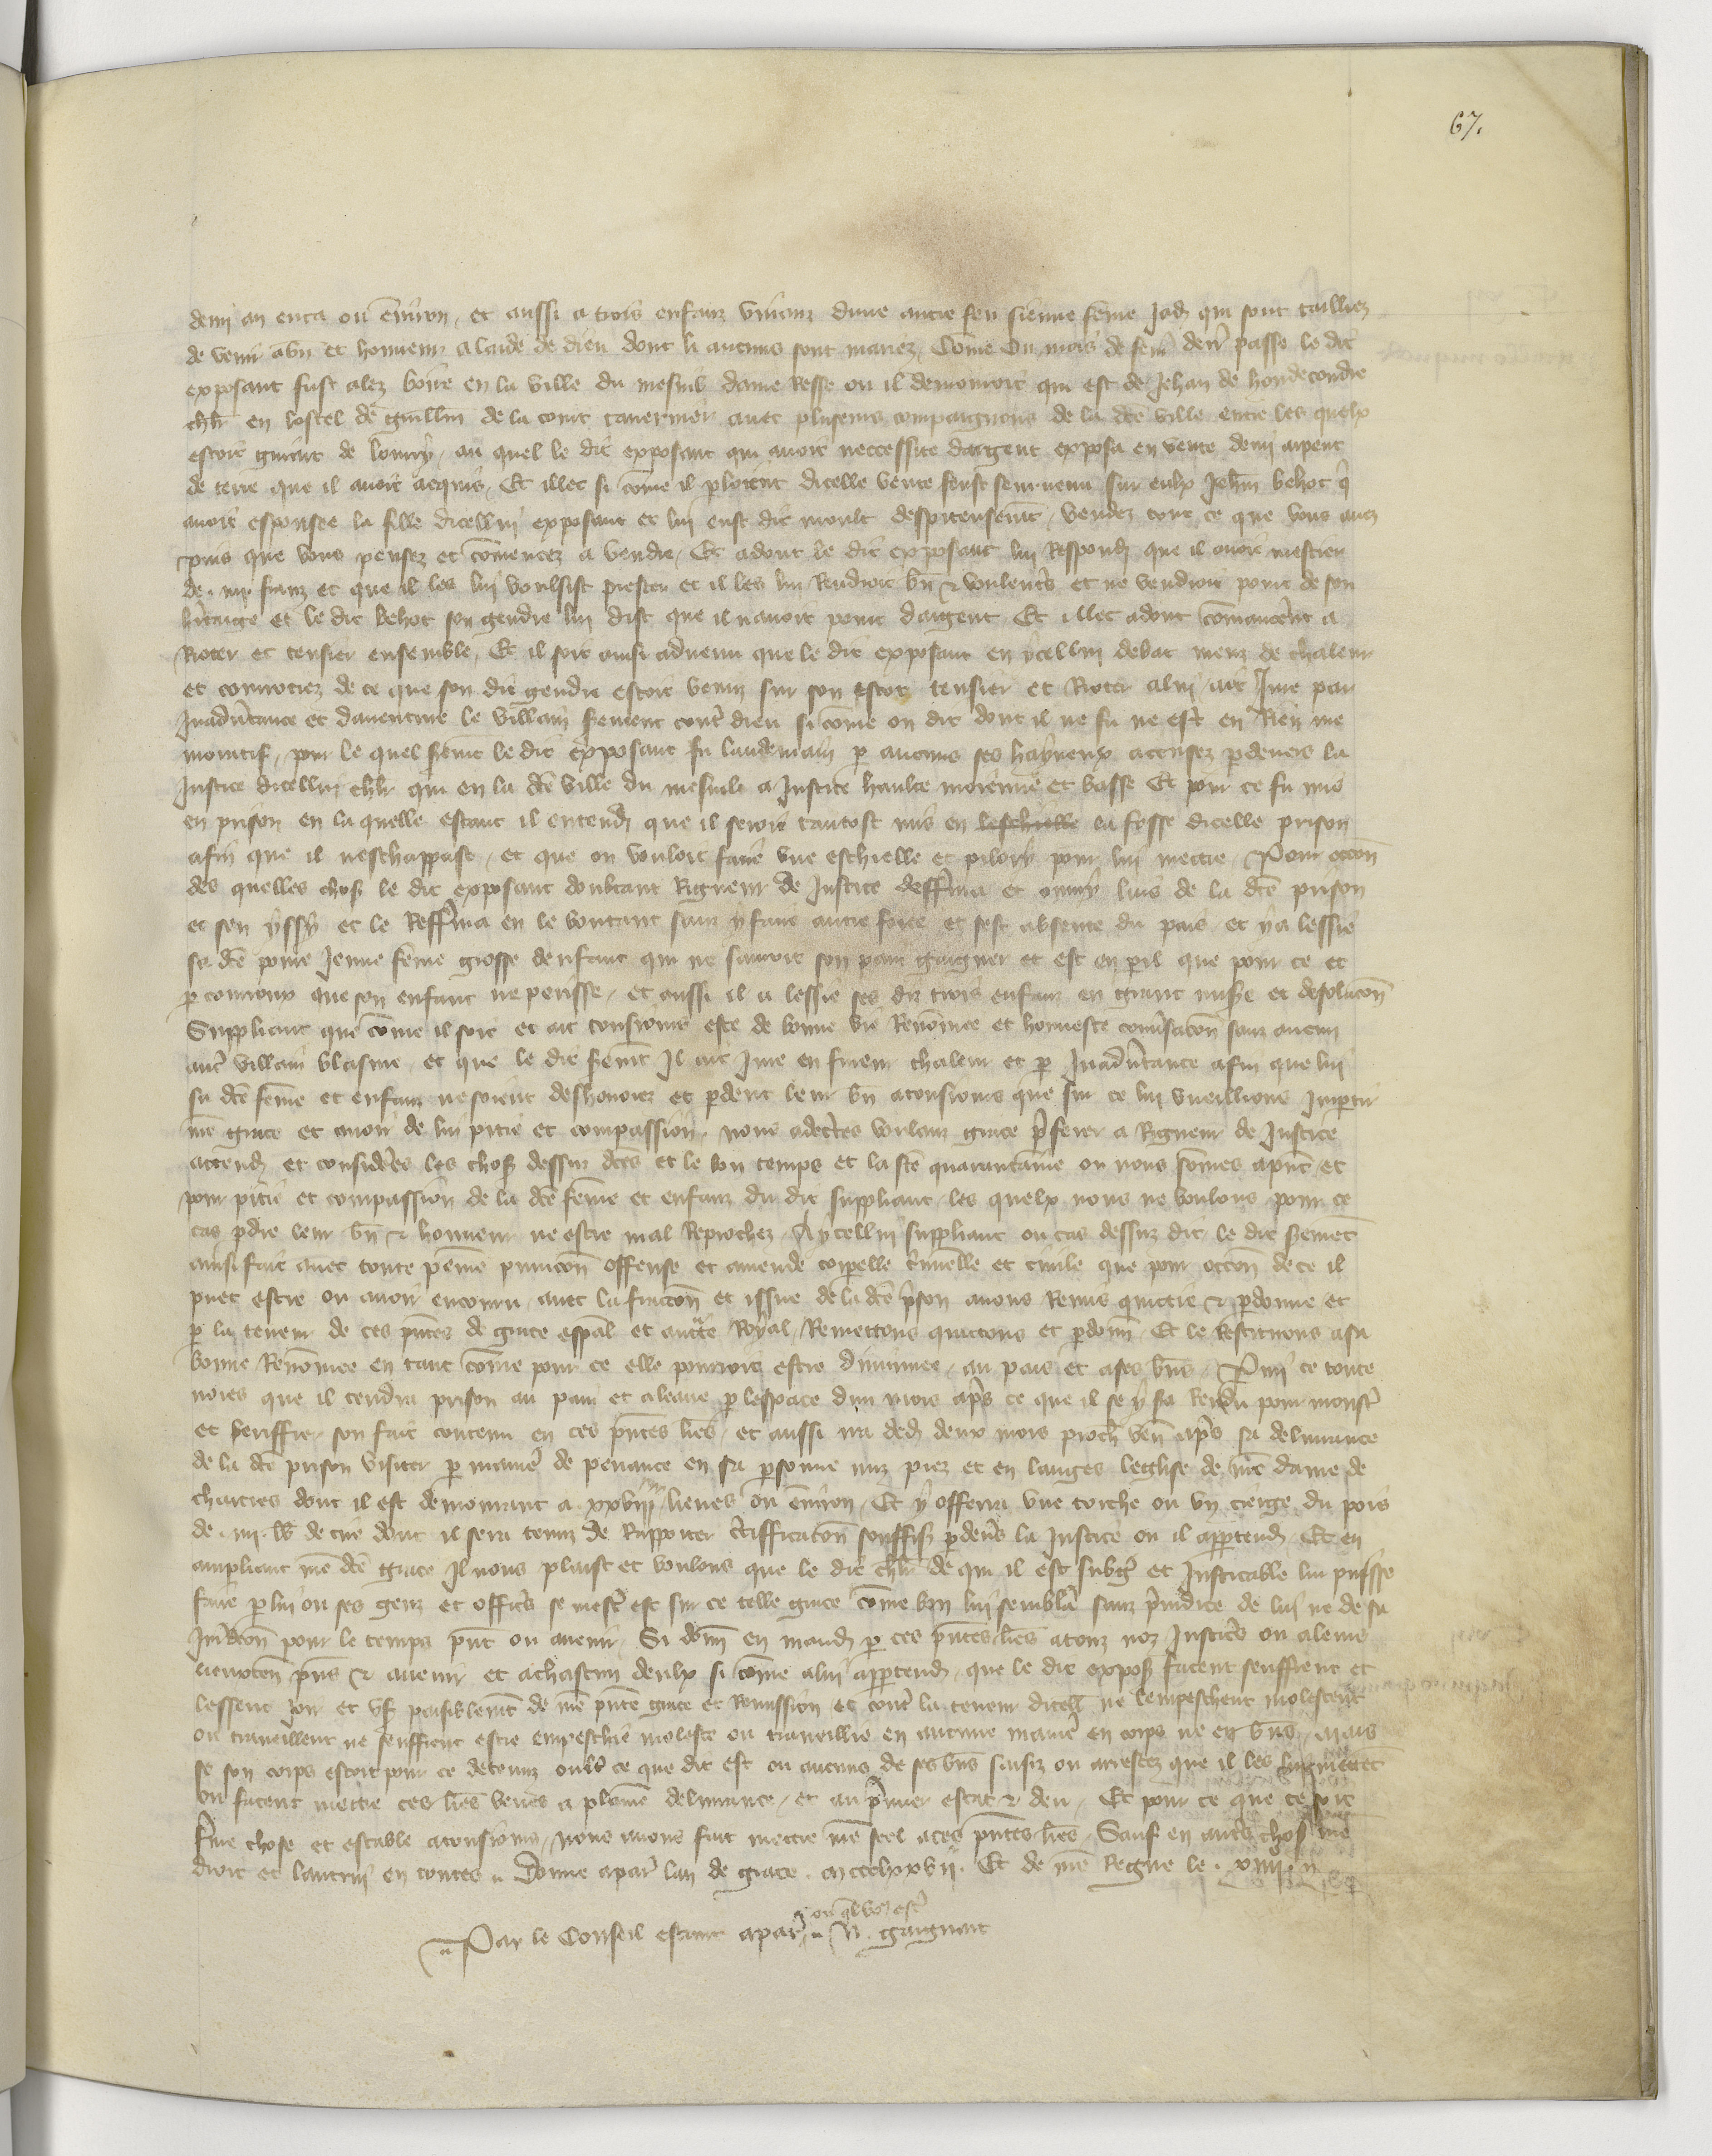 67.
demi an enca ou environ, et aussi a trois enfanz vivanz dune autre feu sienne feme Jadis qui sont tailliez
de venir a bn et honneur a laide de dieu dont li aucuns sont mariez, Come ou mois de fevr derr passe le dit
exposant fust alez boire en la ville du mesnil dame Resse ou il demouroit qui est de Jehan de hondecondre
chlr en lostel de guillin de la court tavernier avec plusieurs compaignons de la dce ville entre les quelx
estoit guiot de lourry, au quel le dit exposant qui avoit neccessite dargent exposa en vente demi arpent
de terre que il avoit acquis, Et illec si come il ploient dicelle vente feust seurvenu sur eulx Jehan behot qi
avoit espousee la fille dicellui exposant et lui eust dit moult despiteusemt, vendez tout ce que vous avez
puis que vous pensez et comencez a vendre, Et adont le dit exposant lui Respondi que il avoit mestier
de .iiii. franz et que il les lui voulsist prester et il les lui Rendroit bn & voulentrs et ne vendroit point de son
hritaige et le dit behot son gendre lui dist que il navoit point dargent Et illec adont comancent a
Rioter et tensier ensemble, Et il soit ainsi advenu que le dit exposant en ycellui debat meuz de chaleur
et courrociez de ce que son dit gendre estoit venuz sur son escot tensier et Rioter a lui, ait Jure par
Inadvrtance et daventure le villain serement contre dieu si come on dit dont il ne fu ne est en Rien me
moratif, pour le quel sremt le dit exposant fu landemain p aucuns ses hayneux accusez pdevers la
Justice dicellui chlr qui en la dce ville du mesnile a Justice haulte moienne et basse Et pour ce fu mis
en prison en la quelle estant il entendi que il seroit tantost mis en leschielle la fosse dicelle prison
afin que il neschappast, et que on vouloit faire une eschielle et pilory pour lui mettre, Pour occon
des quelles choses le dit exposant doubtant Rigueur de Justice deffrma et ouvry luis de la dce prison
et sen yssy et le Reffrma en le boutant sanz y faire autre force et sest absente du pais et y a lessie
sa dce povre Jeune feme grosse denfant qui ne sauroit son pain gaigner et est en pil que pour ce et
p courroux que son enfant ne perisse, et aussi il a lessie ses diz trois enfanz en grant misere et desolacon
Suppliant que come il soit et ait tousjours este de bonne vie Renomee et honneste convrsacon sanz aucun
autre villain blasme et que le dit sremt Il ait Jure en fureur chaleur et p Inadvrtance afin que lui
sa dce feme et enfanz ne soient deshonorez et pdent leur bn a tousjours que sur ce lui vueillions Impartir
nre grace et avoir de lui pitie et compassion, nous adecertes voulanz grace prferer a Rigueur de Justice
attendu et consideres les choses dessur dces et le bon temps et la ste quarantaine ou nous somes a pnt et
pour pitie et compassion de la dce feme et enfanz du dit suppliant, les quelx nous ne voulons pour ce
cas pdre leur bn & honneur ne estre mal Reprochez, A ycellui suppliant ou cas dessuz dit, le dit sremet
ainsi fait avec toute peine punicon offense et amende corpelle crimelle et civile que pour occon de ce il
puet estre ou avoir encouru, avec la fraccon et issue de la dce prison avons Remis quictie & pdonne et
p la teneur de ces pntes de grace espal et aucte Royal, Remettons quictons et pdonn, Et le Restituons a sa
bonne Renomee en tant come pour ce elle pourroit estre diminuee, au pais et a ses bns, Parmi ce toute
voies que il tendra prison au pain et a leaue p lespace dun mois aprs ce que il se y sa Rendu pour monstr
et veriffier son fait contenu en ces pntes lres, et aussi ira dedens deux mois proch ven aprs sa delivrance
de la dce prison visiter p maniere de penance en sa psonne nuz piez et en langes leglise de nre dame de
chartres dont il est demourant a xxviii lieues ou environ, Et y offerra une torche ou un cierge du pois
de .iii. lb de cire dont il sera tenuz de Rapporter ctifficacon souffis pdevs la Justice ou il apptendra. Et en
ampliant nre dce grace Il nous plaist et voulons que le dit chlr de qui il est subgt et Justicable lui puisse
faire p lui ou ses genz et officrs se mestr est sur ce telle grace come bon lui semblera sanz prejudice de lui ne de sa
Juridicon pour le temps pnt ou avenir, Si donn en mandement p ces pntes lres a touz noz Justicrs ou a leurs
lieuxten pns & avenir et a chascun deulx si come a lui apptendra que le dit expos facent seuffrent et
lessent Joir et user paisiblemt de nre pnte grace et Remission et contre la teneur dicelle ne lempeschent molestent
ou traveillent ne seuffrent estre empeschie moleste ou traveillie en aucune maniere en corps ne en bns, mais
se son corps estoit pour ce detenuz ou ce que dit est ou aucuns de ses bns saisiz ou arrestez que il les lui mettent
ou facent mettre ces lres veues a plaine delivrance, et au primier estat & deu, Et pour ce que ce soit
frme chose et estable a tousjours, nous avons fait mettre nre seel a ces pntes lres, Sauf en autrs choses nre
droit et lautrui en toutes. Donne a paris lan de grace. m ccclxxvii. Et de nre Regne le. xiiii.
Par le Conseil estant a paris N. gaignart